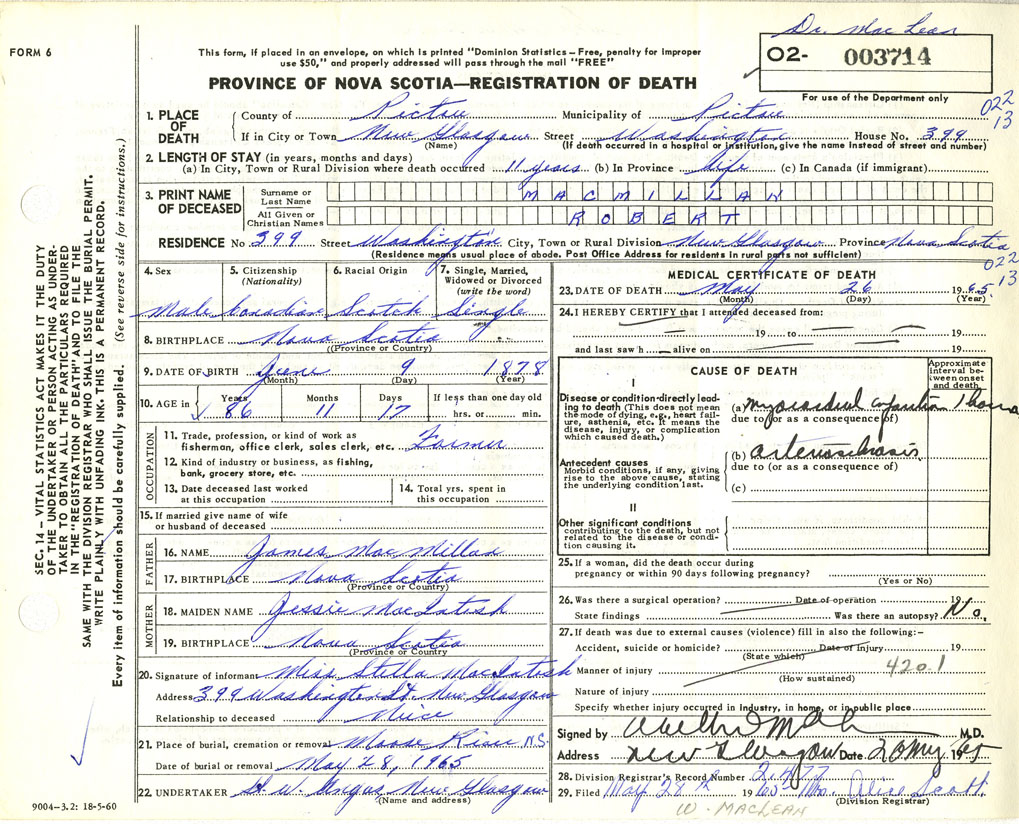 Dr. MacLean
FORM 6
This form, if placed in an envelope, on which is printed "Dominion Statistics—Free, penalty for improper
use $50," and properly addressed will pass through the mail "FREE"
O2- 003714
PROVINCE OF NOVA SCOTIA—REGISTRATION OF DEATH
For use of the Department only
022
13
1. PLACE OF DEATH { County of Pictou Municipality of Pictou
If in City or Town New Glasgow Street Washington House No. 399
(Name) (If death occurred in a hospital or institution, give the name instead of street and number)
2. LENGTH OF STAY (in years, months and days)
(a) In City, Town or Rural Division where death occurred 11 years (b) In Province life (c) In Canada (if immigrant)
3. PRINT NAME OF DECEASED { Surname or Last Name MACMILLAN
All Given or Christian Names ROBERT
RESIDENCE No. 399 Street Washington City, Town or Rural Division New Glasgow Province Nova Scotia
(Residence means usual place of abode. Post Office Address for residents in rural parts not sufficient)
022
13
4. Sex 5. Citizenship (Nationality) 6. Racial Origin 7. Single, Married, Widowed or Divorced (write the word)
Male Canadian Scotch Single
8. BIRTHPLACE Nova Scotia
(Province or Country)
9. DATE OF BIRTH June 9 1878
(Month) (Day) (Year)
10. AGE in { Years Months Days If less than one day old
86 11 17 hrs. or min.
OCCUPATION
11. Trade, profession, or kind of work as
fisherman, office clerk, sales clerk, etc. Farmer
12. Kind of industry or business, as fishing,
bank, grocery store, etc.
13. Date deceased last worked
at this occupation
14. Total yrs. spent in
this occupation
15. If married give name of wife
or husband of deceased
FATHER
16. NAME James MacMillan
17. BIRTHPLACE Nova Scotia
(Province or Country)
MOTHER
18. MAIDEN NAME Jessie MacIntosh
19. BIRTHPLACE Nova Scotia
(Province or Country)
20. Signature of informant Miss Stella MacIntosh
Address 399 Washington St. New Glasgow
Relationship to deceased Niece
21. Place of burial, cremation or removal Moose River N.S.
Date of burial or removal May 28, 1965
22. UNDERTAKER H. W. Angus New Glasgow
(Name and address)
9004—3.2: 18-5-60
MEDICAL CERTIFICATE OF DEATH
23. DATE OF DEATH May 26 1965
(Month) (Day) (Year)
24. I HEREBY CERTIFY that I attended deceased from:
19 to 19
and last saw h alive on 19
CAUSE OF DEATH
Approximate interval between onset and death
I
Disease or condition directly leading to death (This does not mean the mode of dying, e.g., heart failure, asthenia, etc. It means the disease, injury, or complication which caused death.)
(a) myocardial infarction 1 hour
due to (or as a consequence of)
Antecedent causes
Morbid conditions, if any, giving rise to the above cause, stating the underlying condition last.
(b) arteriosclerosis
due to (or as a consequence of)
(c)
II
Other significant conditions
contributing to the death, but not related to the disease or condition causing it.
25. If a woman, did the death occur during
pregnancy or within 90 days following pregnancy?
(Yes or No)
26. Was there a surgical operation? Date of operation 19
State findings Was there an autopsy? No.
27. If death was due to external causes (violence) fill in also the following:-
Accident, suicide or homicide? Date of Injury 19
(State which)
Manner of injury 420.1
(How sustained)
Nature of injury
Specify whether injury occurred in industry, in home, or in public place
Signed by M.D.
Address New Glasgow Date 28 May 1965
28. Division Registrar's Record Number
29. Filed May 28th 1965 Mrs. Alice Scott
(Division Registrar)
W. MACLEAN
SEC. 14 — VITAL STATISTICS ACT MAKES IT THE DUTY
OF THE UNDERTAKER OR PERSON ACTING AS UNDER-
TAKER TO OBTAIN ALL THE PARTICULARS REQUIRED
IN THE "REGISTRATION OF DEATH" AND TO FILE THE
SAME WITH THE DIVISION REGISTRAR WHO SHALL ISSUE THE BURIAL PERMIT.
WRITE PLAINLY WITH UNFADING INK. THIS IS A PERMANENT RECORD.
Every item of information should be carefully supplied. (See reverse side for instructions.)